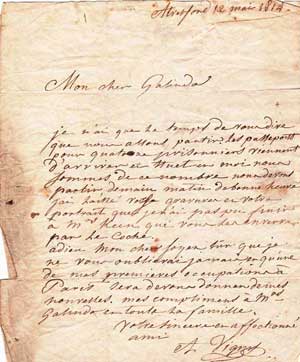 Alresford 12 mai 1814
Mon cher Galindo
je n'ai que le temps de vous dire
que nous allons partir les passeports
pour quatorze prisonniers viennent
d'arriver et Huet et moi nous
sommes de ce nombre nous devons
partir demain matin de bonne heure
j'ai laissé votre gravure et votre
portrait que je n'ai pas pu finir
à Mr Keen qui vous les enverra
par le Coche
adieu Mon cher soyez sûr que je
ne vous oublierai jamais et qu'une
de mes premières occupations à
Paris sera de vous donner de mes
nouvelles, mes compliments à Mrs
Galindo et toute la famille
Votre sincère et affectionné
ami